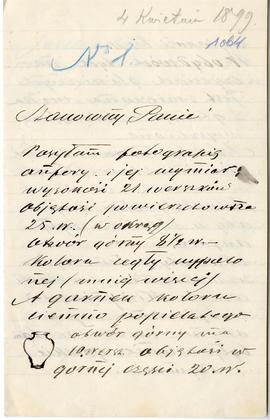 4 Kwietnia 1899.
№ 1
1064
Szanowny Panie
Posyłam fotografię
amfory i jej wymiar:
wysokość 21 werszków
objętość powierzchowna
25 w. (w okręg)
otwór górny 8½ w.
koloru cegły wypalo
nej (mniej więcej)
A garnek koloru
ciemno popielatego
otwór górny ma
10 wersz objętość w
górnej części 20. w.